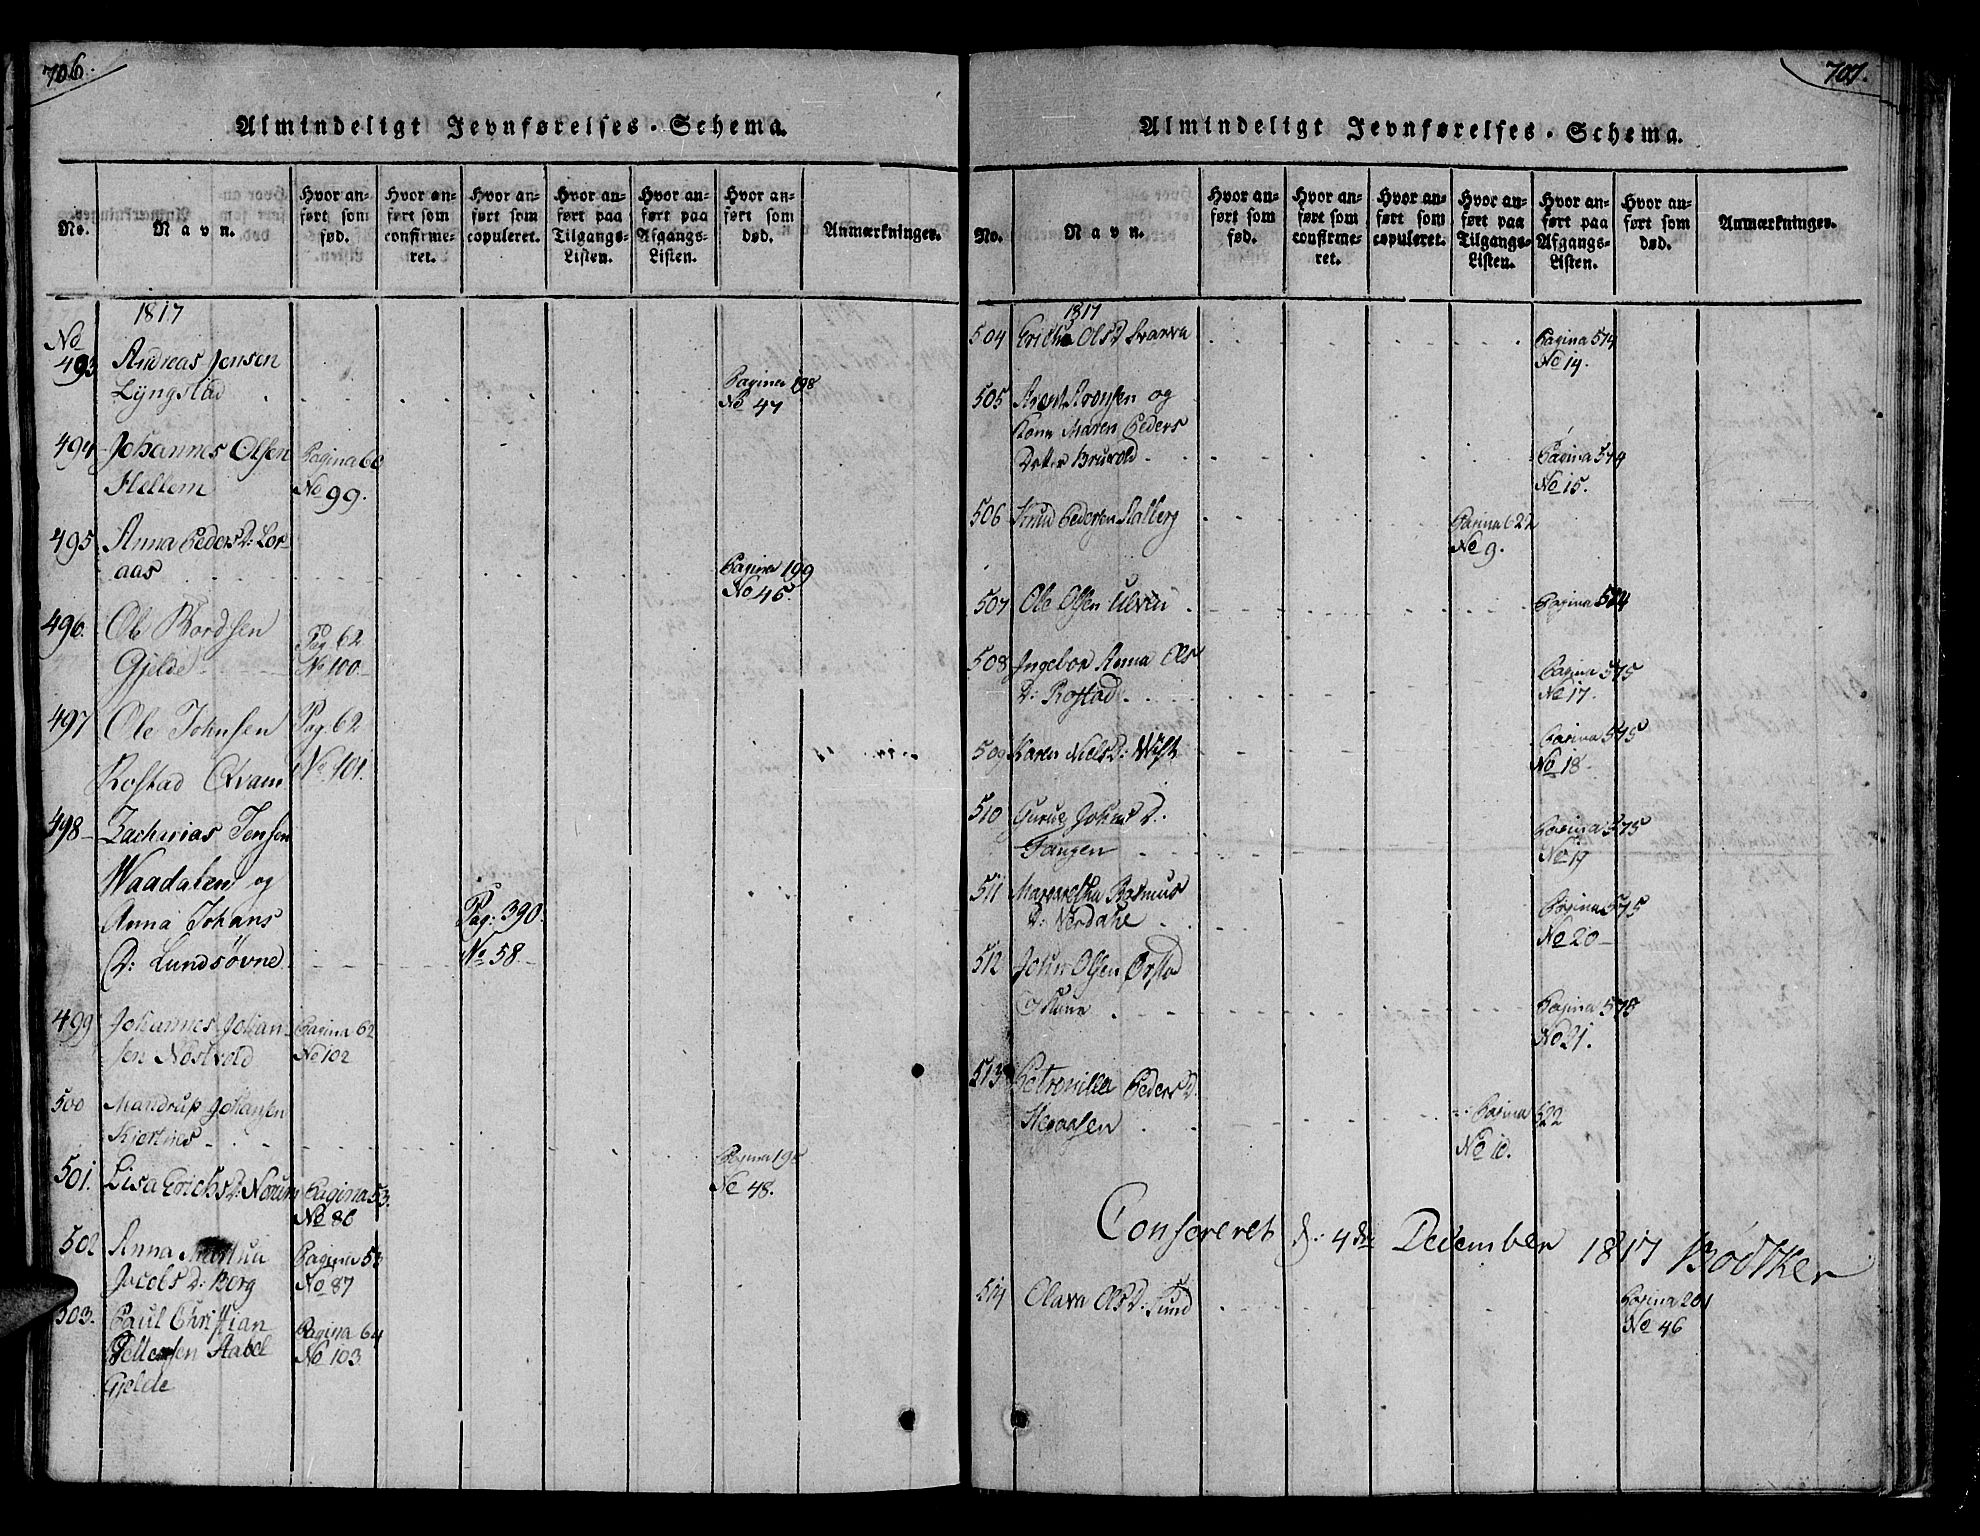 706.
Almindeligt Jevnførelses-Schema.
No.
Navn.
Hvor an-
ført som
fød.
Hvor an-
ført som
confirme-
ret.
Hvor an-
ført som
copuleret.
Hvor an-
ført paa
Tilgangs-
Listen.
Hvor an-
ført paa
Afgangs-
Listen.
Hvor an-
ført som
død.
Anmærkninger.
1817
No
493 Andreas Jensen
Lÿngstad Pagina 198
No 47
494 Johannes Olsen Pagina 60
Hellem No 99.
495 Anna Peders D: Lor-
aas Pagina 199
No 45.
496. Ole Bordsen Pag 62
Gjelde No 100.
497 Ole Johnsen Pag. 62
Rostad Qvam No. 101.
498 Zacharias Jensen
Waadalen og
Anna Johans Pag: 390.
D: Lundsøvne. No. 58.
499 Johannes Johan- Pagina 62
sen Nostvold No 102
500 Mandrup Johansen
Kjertnes Pagina 198
No 48.
501. Lisa Erichs D: Norum Pagina 53.
No 86
502 Anna Pagina 53
Jacobs D: Borg No 87
503. Paul Christian Pagina 64
Pettersen Aabel No 103
Gjelde
707.
Almindeligt Jevnførelses-Schema.
No.
Navn.
Hvor an-
ført som
fød.
Hvor an-
ført som
confirme-
ret.
Hvor an-
ført som
copuleret.
Hvor an-
ført paa
Tilgangs-
Listen.
Hvor an-
ført paa
Afgangs-
Listen.
Hvor an-
ført som
død.
Anmærkninger.
1817
504 Ols D Pagina 574
No 14.
505 og
Kone Maren Peders
Datter Bruvold Pagina 574
No 15.
506 Knud Pedersen Aalberg Pagina 622
No 9.
507 Ole Olsen Ulven Pagina 574
508 Ingebor Anna Ols
D: Rostad Pagina 575
No 17.
509 Karen Niels D: Wist Pagina 575
No 18
510 Gurue D.
Tangen Pagina 575
No 19
511 Margrethe Rasmus
D: Verdahl Pagina 575
No 20
512 John Olsen
Pagina 575
No 21.
513 Petronille Peders D.
Pagina 622
No 10.
Confereret d: 4de December 1817 Bødtker
514 Olava Ols D: Sund Pagina 201
No 46